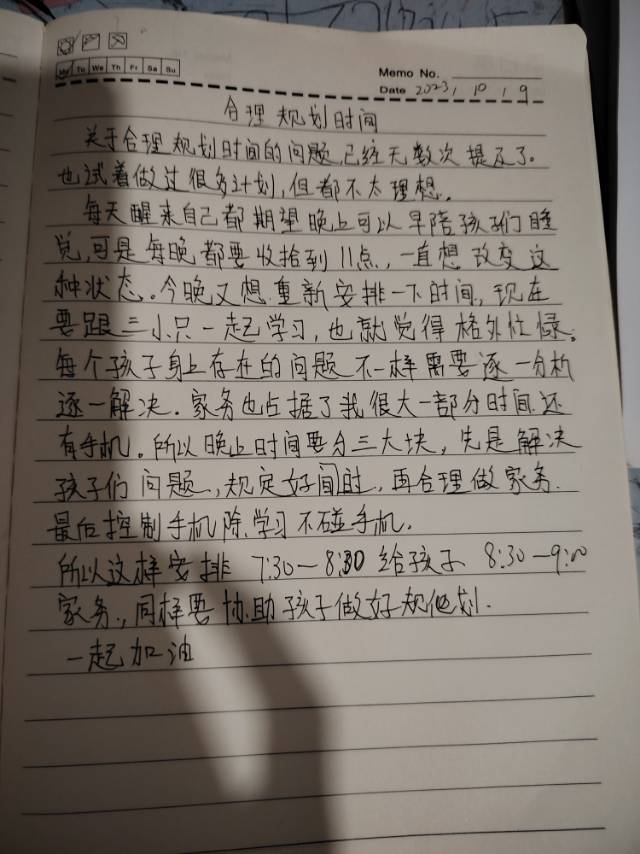 Mo Tu We Th Fr Sa Su
Memo No.
Date 2023, 10, 9
合理规划时间
关于合理规划时间的问题,已经无数次提及了。
也试着做过很多计划,但都不太理想。
每天醒来自己都期望晚上可以早陪孩子们睡
觉,可是每晚都要收拾到11点,一直想改变这
种状态。今晚又想重新安排一下时间,现在
要跟三小只一起学习,也就觉得格外忙碌。
每个孩子身上存在的问题不一样需要逐一分析
逐一解决.家务也占据了我很大一部分时间还
有手机。所以晚上时间要分三大块,先是解决
孩子们问题,规定好间时,再合理做家务.
最后控制手机除学习不碰手机.
所以这样安排 7:30—8:30 给孩子 8:30—9:00
家务,同样要协助孩子做好规划.
一起加油